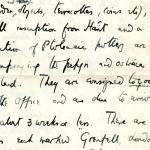 objects, terracottas, coins etc)
inscription from Haût and a
of Ptolemaic pottery are
up the papyri and ostraca
. They are consigned to you
the Office and are due to arrive
about 3 weeks or less. There are
each marked "Grenfell, London